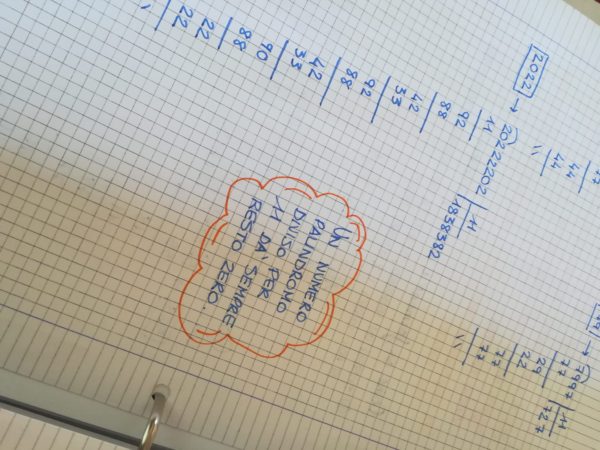 77
44
44
"
→ 7997 | 11
77 727
29
22
77
77
"
2022 → 20222202 | 11
11 1838382
92
88
42
33
92
88
42
33
90
88
22
22
"
UN NUMERO
PALINDROMO
DIVISO PER
11 DA' SEMPRE
RESTO ZERO.